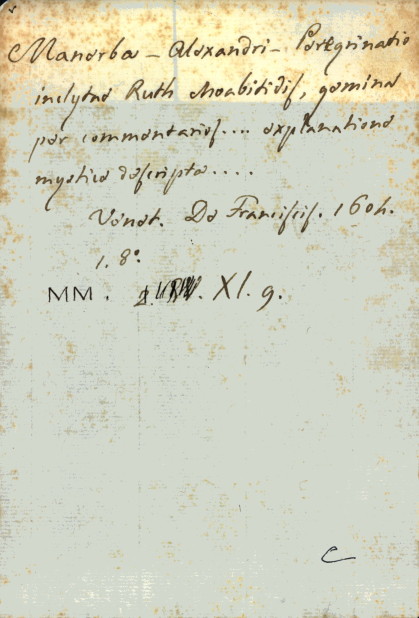 Manerba - Alexandri - Peregrinatio
inclytae Ruth Moabitidis, gemina
per commentarios.... explanatione
mystice descripta.....
Venet. De Franciscis. 1604.
1. 8°.
MM. XI. 9.
C